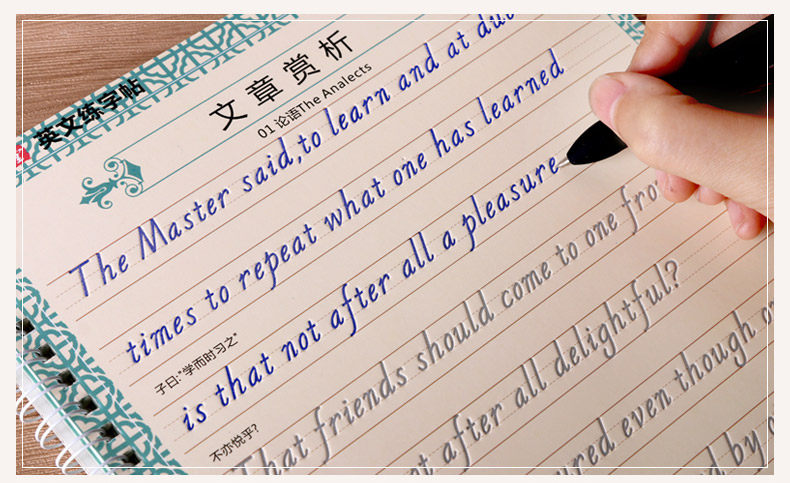 英文练字帖
文章赏析
01 论语The Analects
The Master said,to learn and at due
times to repeat what one has learned
子曰:"学而时习之"
is that not after all a pleasure
不亦悦乎?
That friends should come to one
after all delightful?
even though
by